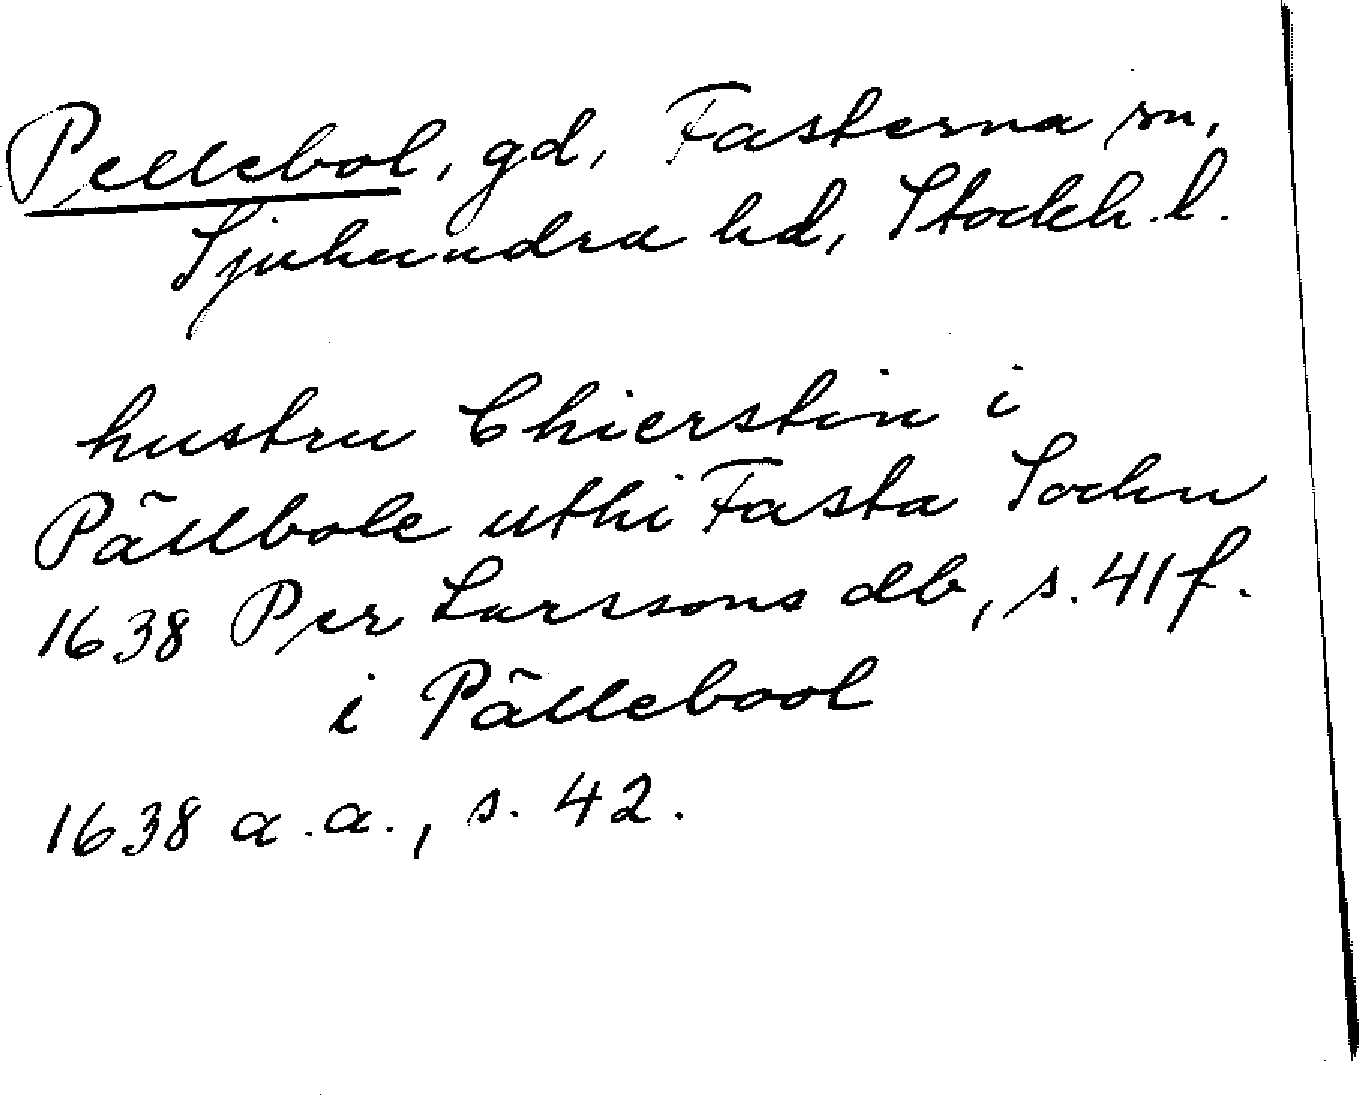 Pellebol, gd, Fasterna sn,
Sjuhundra hd, Stockh. l.
hustru Chierstin i
Pällbole uthi Fasta Sochn
1638 Per Larssons db, s. 41 f.
i Pällebool
1638 a.a., s. 42.